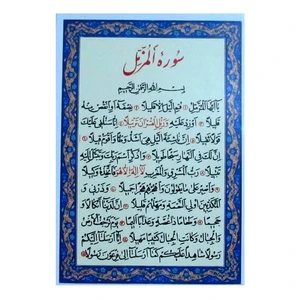 سورة المزمل
بسم الله الرحمن الرحيم
يا ايها المزمل قم الليل الا قليلا نصفه او انقص منه
قليلا او زد عليه ورتل القرآن ترتيلا انا سنلقي عليك
قولا ثقيلا ان ناشئة الليل هي اشد وطئا واقوم قيلا
ان لك في النهار سبحا طويلا واذكر اسم ربك وتبتل اليه
تبتيلا رب المشرق والمغرب لا اله الا هو فاتخذه وكيلا
واصبر على ما يقولون واهجرهم هجرا جميلا وذرني و
المكذبين اولي النعمة ومهلهم قليلا ان لدينا انكالا و
جحيما وطعاما ذا غصة وعذابا اليما يوم ترجف الارض
والجبال وكانت الجبال كثيبا مهيلا انا ارسلنا اليكم
رسولا شاهدا عليكم كما ارسلنا الى فرعون رسولا